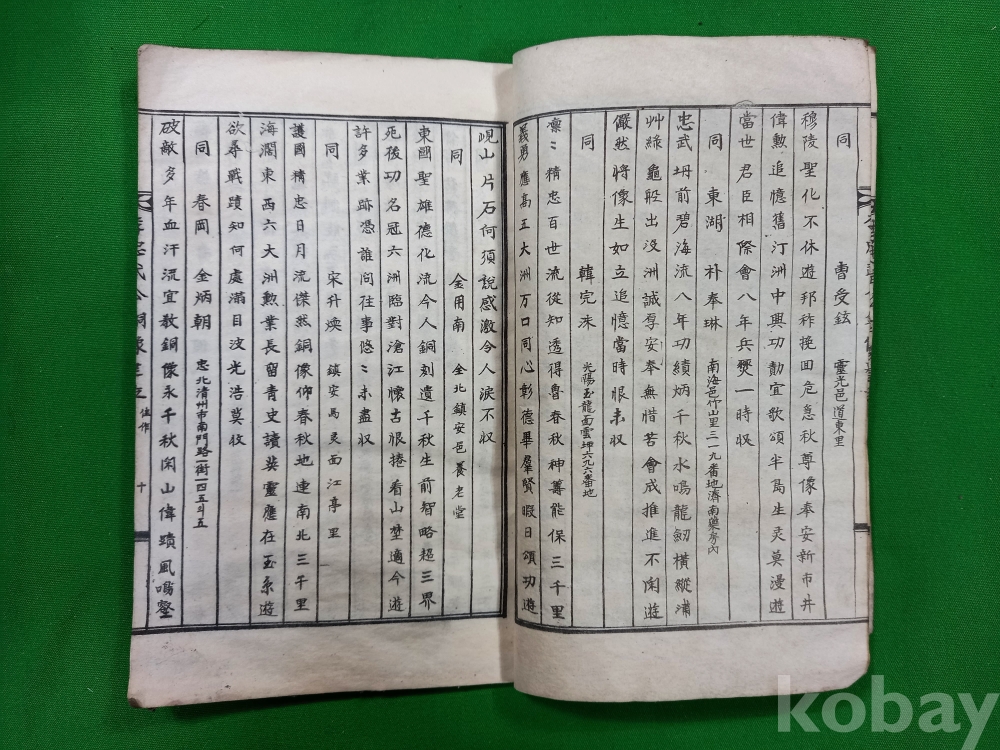 同 曺受鉉 靈光邑道東里
穆陵聖化不休遊邦祚挽囬危急秋尊像奉安新市井
偉勳追憶舊汀洲中興功勣宜歌頌半島生灵莫漫遊
當世君臣相際會八年兵燹一時収
同 東湖 朴奉琳 南海邑竹山里三一九番地濟南藥房內
忠武坍前碧海流八年功績炳千秋水鳴龍劒橫縱浦
艸綠龜船出没洲誠辱安奉無惜苦會成推進不閑遊
儼然將像生如立追憶當時恨未収
同 韓完洙 光陽玉龍面雲坪六九六番地
凛〻精忠百世流從知透得魯春秋神籌能保三千里
義勇應高五大洲万口同心彰德畢羣賢暇日頌功遊
峴山片石何須說感激令人淚不収
同 金用南 全北鎭安邑養老堂
東國聖雄德化流今人銅刻遺千秋生前智略超三界
死後功名冠六洲臨對滄江懷古恨捲看山埜適今遊
許多業跡憑誰问往事悠〻未盡収
同 宋升煥 鎭安馬灵面江亭里
護國精忠日月流傑然銅像仰春秋地連南北三千里
海濶東西六大洲勲業長留青史讀英靈應在玉京遊
欲尋戰蹟知何處滿目波光浩莫収
同 春岡 金炳朝 忠北清州市南門路一街一四五斗五
破敵多年血汗流宜教銅像永千秋閑山偉蹟風鳴壑
忠武公銅像建立 佳作 十